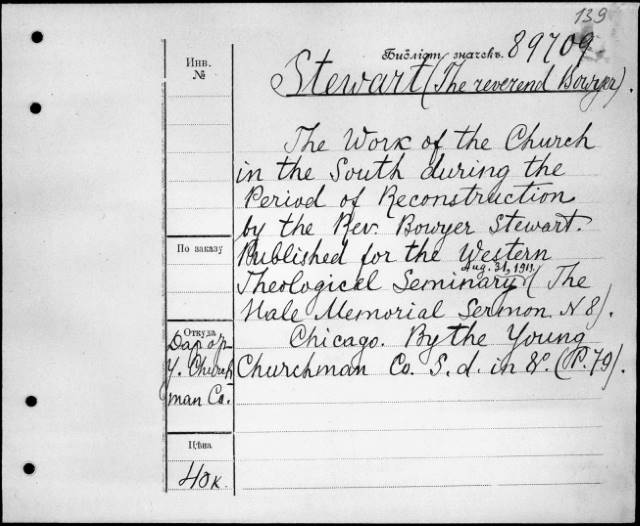 139
Библіот. значекъ. 89709
Инв.
№
Stewart (The reverend Bowyer).
The Work of the Church
in the South during the
Period of Reconstruction
by the Rev. Bowyer Stewart.
Published for the Western
Aug. 31, 1911.
Theological Seminary (The
Hale Memorial Sermon N 8).
Chicago. By the Young
Churchman Co. S. d. in 8º. (P. 79).
По заказу
Откуда
Даръ
Y. Church
man Co.
Цѣна
40к.